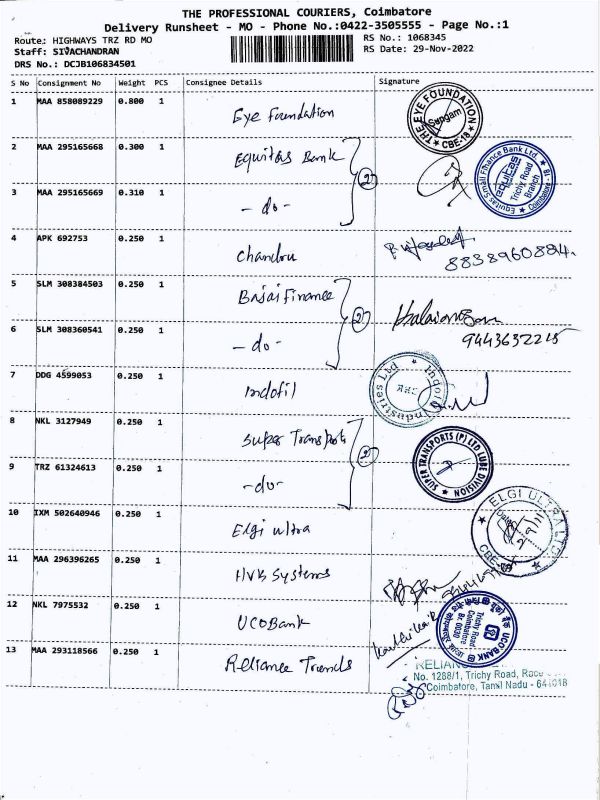 THE PROFESSIONAL COURIERS, Coimbatore
Delivery Runsheet - MO - Phone No.:0422-3505555 - Page No.:1
Route: HIGHWAYS TRZ RD MO
RS No.: 1068345
Staff: SIVACHANDRAN
RS Date: 29-Nov-2022
DRS No.: DCJB106834501
S No Consignment No Weight PCS Consignee Details Signature
1 MAA 858089229 0.800 1 Eye Foundation
THE EYE FOUNDATION Sungam CBE-18
2 MAA 295165668 0.300 1 Equitas Bank
2
Equitas Small Finance Bank Ltd. equitas Trichy Road Branch Coimbatore
3 MAA 295165669 0.310 1 -do-
4 APK 692753 0.250 1 Chandru
8838960884.
5 SLM 308384503 0.250 1 Bajaj Finance
2
6 SLM 308360541 0.250 1 -do-
9443632215
7 DDG 4599053 0.250 1 Indofil
Indofil Industries Ltd
8 NKL 3127949 0.250 1 Super Transports
2
SUPER TRANSPORTS (P) LTD LUBE DIVISION
9 TRZ 61324613 0.250 1 -do-
10 IXM 502640946 0.250 1 Elgi ultra
ELGI ULTRA LTD.
11 MAA 296396265 0.250 1 HVB Systems
12 NKL 7975532 0.250 1 UCO Bank
UCO BANK Trichy Road Coimbatore Br. 0030
13 MAA 293118566 0.250 1 Reliance Trends
No. 1268/1, Trichy Road, Race
Coimbatore, Tamil Nadu - 641018